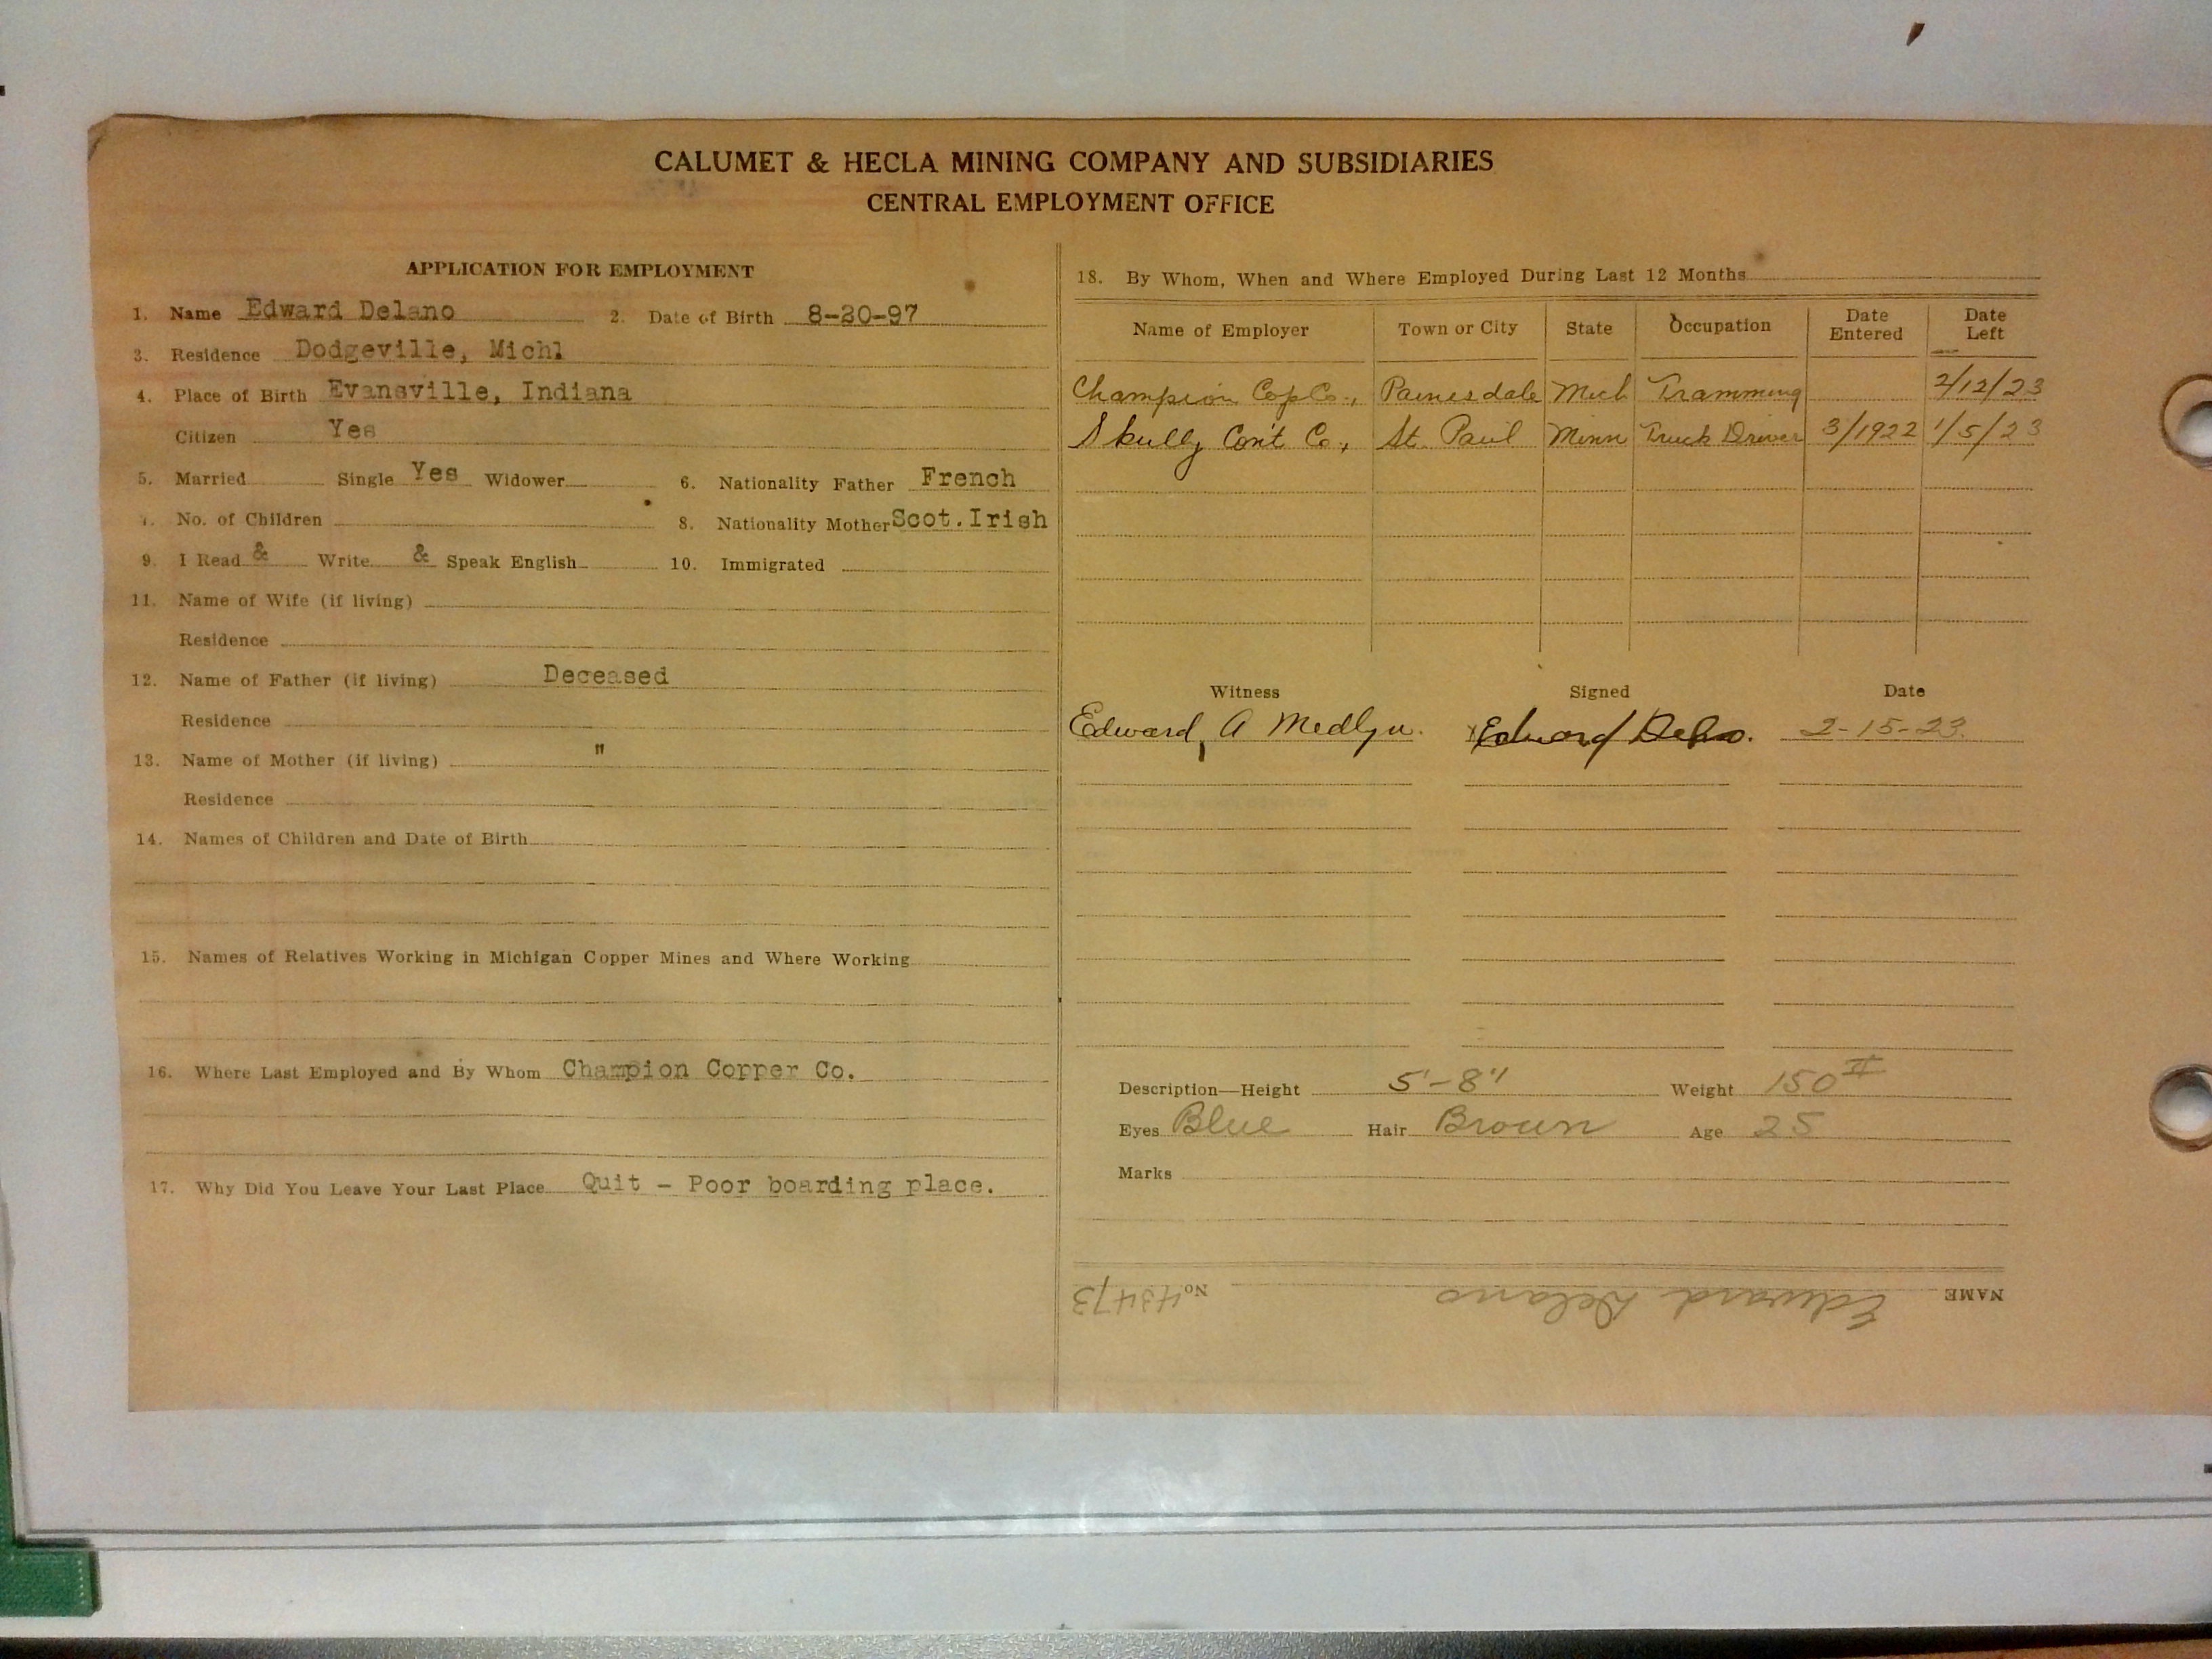 CALUMET & HECLA MINING COMPANY AND SUBSIDIARIES
CENTRAL EMPLOYMENT OFFICE
APPLICATION FOR EMPLOYMENT
1. Name Edward Delano 2. Date of Birth 8-20-97
3. Residence Dodgeville, Michl
4. Place of Birth Evansville, Indiana
Citizen Yes
5. Married Single Yes Widower 6. Nationality Father French
7. No. of Children 8. Nationality Mother Scot.Irish
9. I Read & Write & Speak English 10. Immigrated
11. Name of Wife (if living)
Residence
12. Name of Father (if living) Deceased
Residence
13. Name of Mother (if living) "
Residence
14. Names of Children and Date of Birth
15. Names of Relatives Working in Michigan Copper Mines and Where Working
16. Where Last Employed and By Whom Champion Copper Co.
17. Why Did You Leave Your Last Place Quit - Poor boarding place.
18. By Whom, When and Where Employed During Last 12 Months
Name of Employer Town or City State Occupation Date Entered Date Left
Champion Cop Co., Painesdale Mich Tramming 2/12/23
Skully Con't Co., St. Paul Minn Truck Driver 3/1922 1/5/23
Witness Signed Date
Edward A Medlyn. x Edward 2-15-23.
Description—Height 5'-8" Weight 150
Eyes Blue Hair Brown Age 25
Marks
NAME Edward Delano No 43473